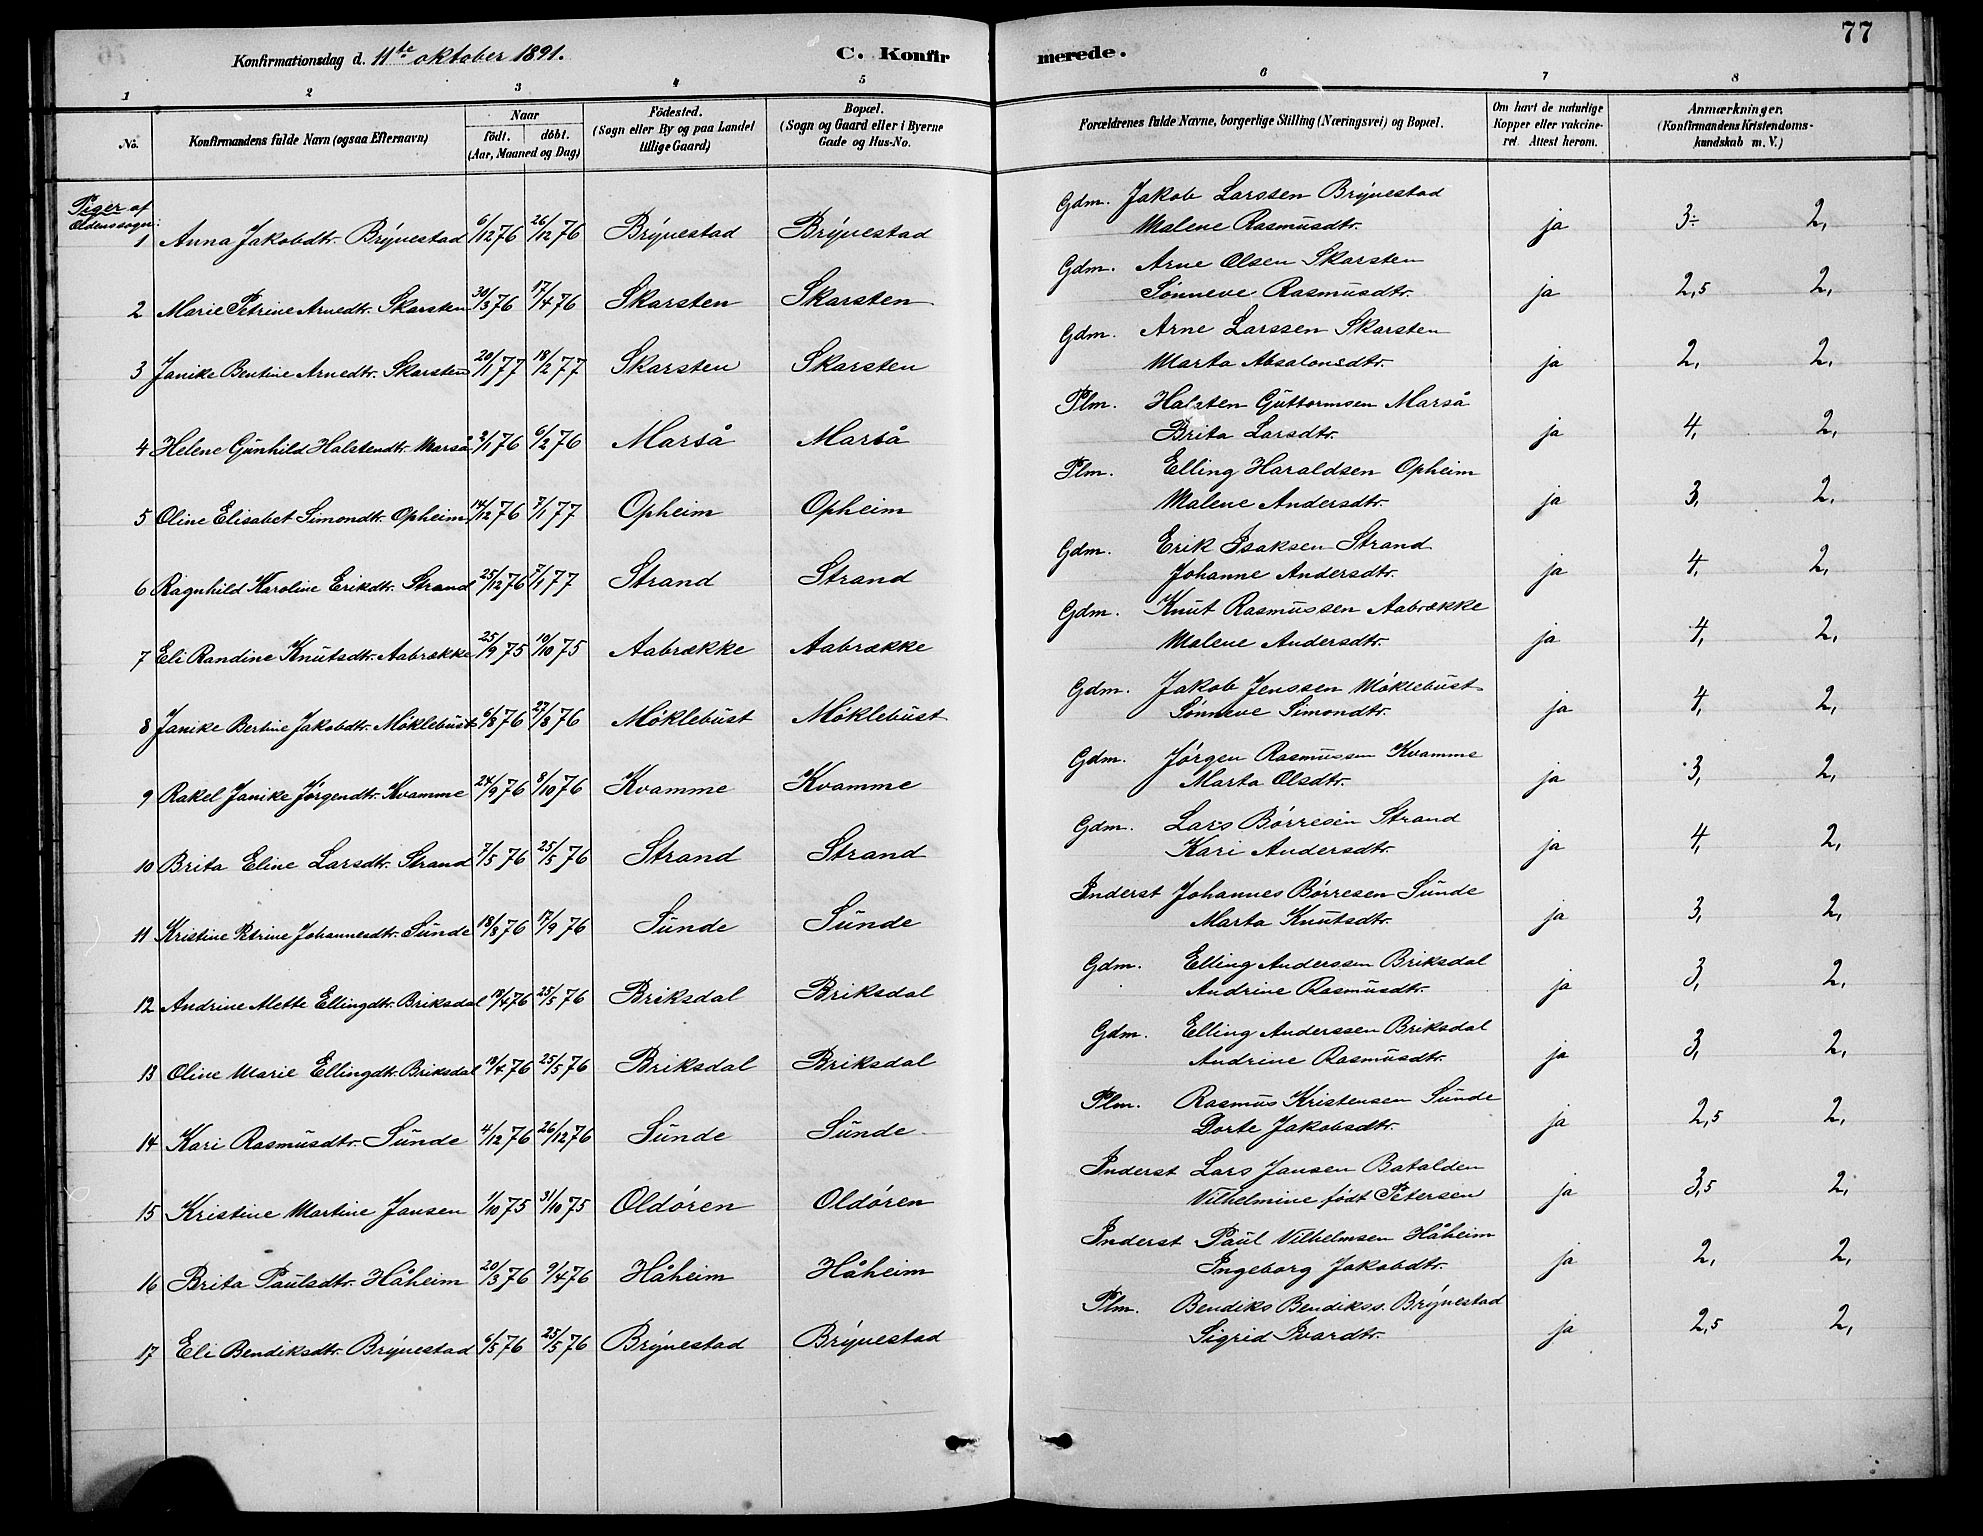 77
Konfirmationsdag d. 11te oktober 1891.
C. Konfirmerede.
1 2 3 4 5 6 7 8
No.
Konfirmandens fulde Navn (ogsaa Efternavn)
Naar
födt. döbt.
(Aar, Maaned og Dag)
Födested.
(Sogn eller By og paa Landet
tillige Gaard)
Bopæl.
(Sogn og Gaard eller i Byerne
Gade og Hus-No.
Forældrenes fulde Navne, borgerlige Stilling (Næringsvei) og Bopæl.
Om havt de naturlige
Kopper eller vakcine-
ret. Attest herom.
Anmærkninger.
(Konfirmandens Kristendoms-
kundskab m. V.)
Piger af
Oldenssogn:
1 Anna Jakobdtr. Brynestad 6/12 76 26/12 76 Brynestad Brynestad Gdm. Jakob Larssen Brynestad
Malene Rasmusdtr. ja 3÷ 2,
2 Marie Petrine Arnedtr. Skarsten 30/3 76 17/4 76 Skarsten Skarsten Gdm. Arne Olsen Skarsten
Sønneve Rasmusdtr. ja 2,5 2,
3 Janike Bentine Arnedtr. Skarsten 20/1 77 18/2 77 Skarsten Skarsten Gdm. Arne Larssen Skarsten
Marta Absalonsdtr. ja 2, 2,
4 Helene Gunhild Halstendtr. Marså 2/1 76 6/2 76 Marså Marså Plm. Halsten Guttormsen Marså
Brita Larsdtr. ja 4, 2,
5 Oline Elisabet Simondtr. Opheim 14/12 76 7/1 77 Opheim Opheim Plm. Elling Haraldsen Opheim
Malene Andersdtr. ja 3, 2,
6 Ragnhild Karoline Eriksdtr. Strand 25/12 76 7/1 77 Strand Strand Gdm. Erik Isaksen Strand
Johanne Andersdtr. ja 4, 2,
7 Eli Randine Knutsdtr. Aabrække 25/9 75 10/10 75 Aabrække Aabrække Gdm. Knut Rasmussen Aabrække
Malene Andersdtr. ja 4, 2,
8 Janike Bertine Jakobdtr. Møklebust 6/8 76 27/8 76 Møklebust Møklebust Gdm. Jakob Jenssen Møklebust
Sønneve Simondtr. ja 4, 2,
9 Rakel Janike Jørgendtr. Kvamme 24/9 76 8/10 76 Kvamme Kvamme Gdm. Jørgen Rasmussen Kvamme
Marta Olsdtr. ja 3, 2,
10 Brita Eline Larsdtr. Strand 7/5 76 25/5 76 Strand Strand Gdm. Lars Børresen Strand
Kari Andersdtr. ja 4, 2,
11 Kristine Petrine Johannesdtr. Sunde 18/8 76 17/9 76 Sunde Sunde Inderst Johannes Børresen Sunde
Marta Knutsdtr. ja 3, 2,
12 Andrine Mette Ellingdtr. Briksdal 19/4 76 25/5 76 Briksdal Briksdal Gdm. Elling Anderssen Briksdal
Andrine Rasmusdtr. ja 3, 2,
13 Oline Marie Ellingdtr. Briksdal 19/4 76 25/5 76 Briksdal Briksdal Gdm. Elling Anderssen Briksdal
Andrine Rasmusdtr. ja 3, 2,
14 Kari Rasmusdtr. Sunde 4/12 76 26/12 76 Sunde Sunde Plm. Rasmus Kristensen Sunde
Dorte Jakobsdtr. ja 2,5 2,
15 Kristine Martine Jansen 1/10 75 31/10 75 Oldøren Oldøren Inderst Lars Jansen Batalden
Vilhelmine født Petersen ja 3,5 2,
16 Brita Paulsdtr. Håheim 20/3 76 9/4 76 Håheim Håheim Inderst Paul Vilhelmsen Håheim
Ingeborg Jakobdtr. ja 2, 2,
17 Eli Bendiksdtr. Brynestad 6/5 76 25/5 76 Brynestad Brynestad Plm. Bendiks Bendikss. Brynestad
Sigrid Ivardtr. ja 2,5 2,